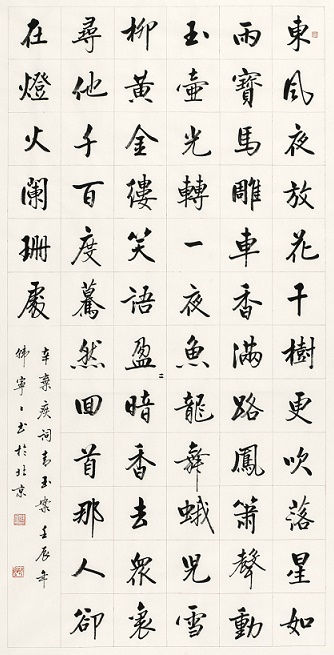 東風夜放花千樹更吹落星如
雨寶馬雕車香滿路鳳簫聲動
玉壺光轉一夜魚龍舞蛾兒雪
柳黃金縷笑語盈〻暗香去眾裏
尋他千百度驀然回首那人卻
在燈火闌珊處
辛棄疾詞青玉案壬辰年
偉寧書於北京